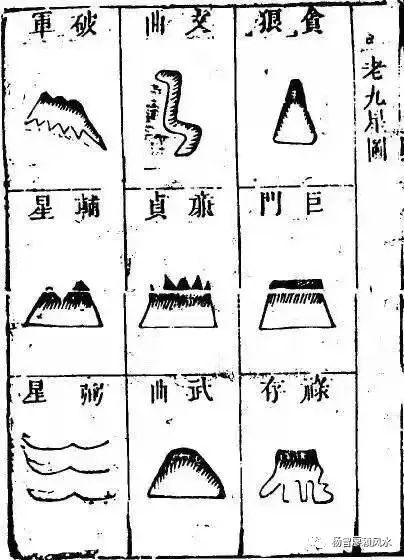 老九星圖
貪狼
文曲
破軍
巨門
廉貞
輔星
祿存
武曲
弼星
杨曾廖赖风水